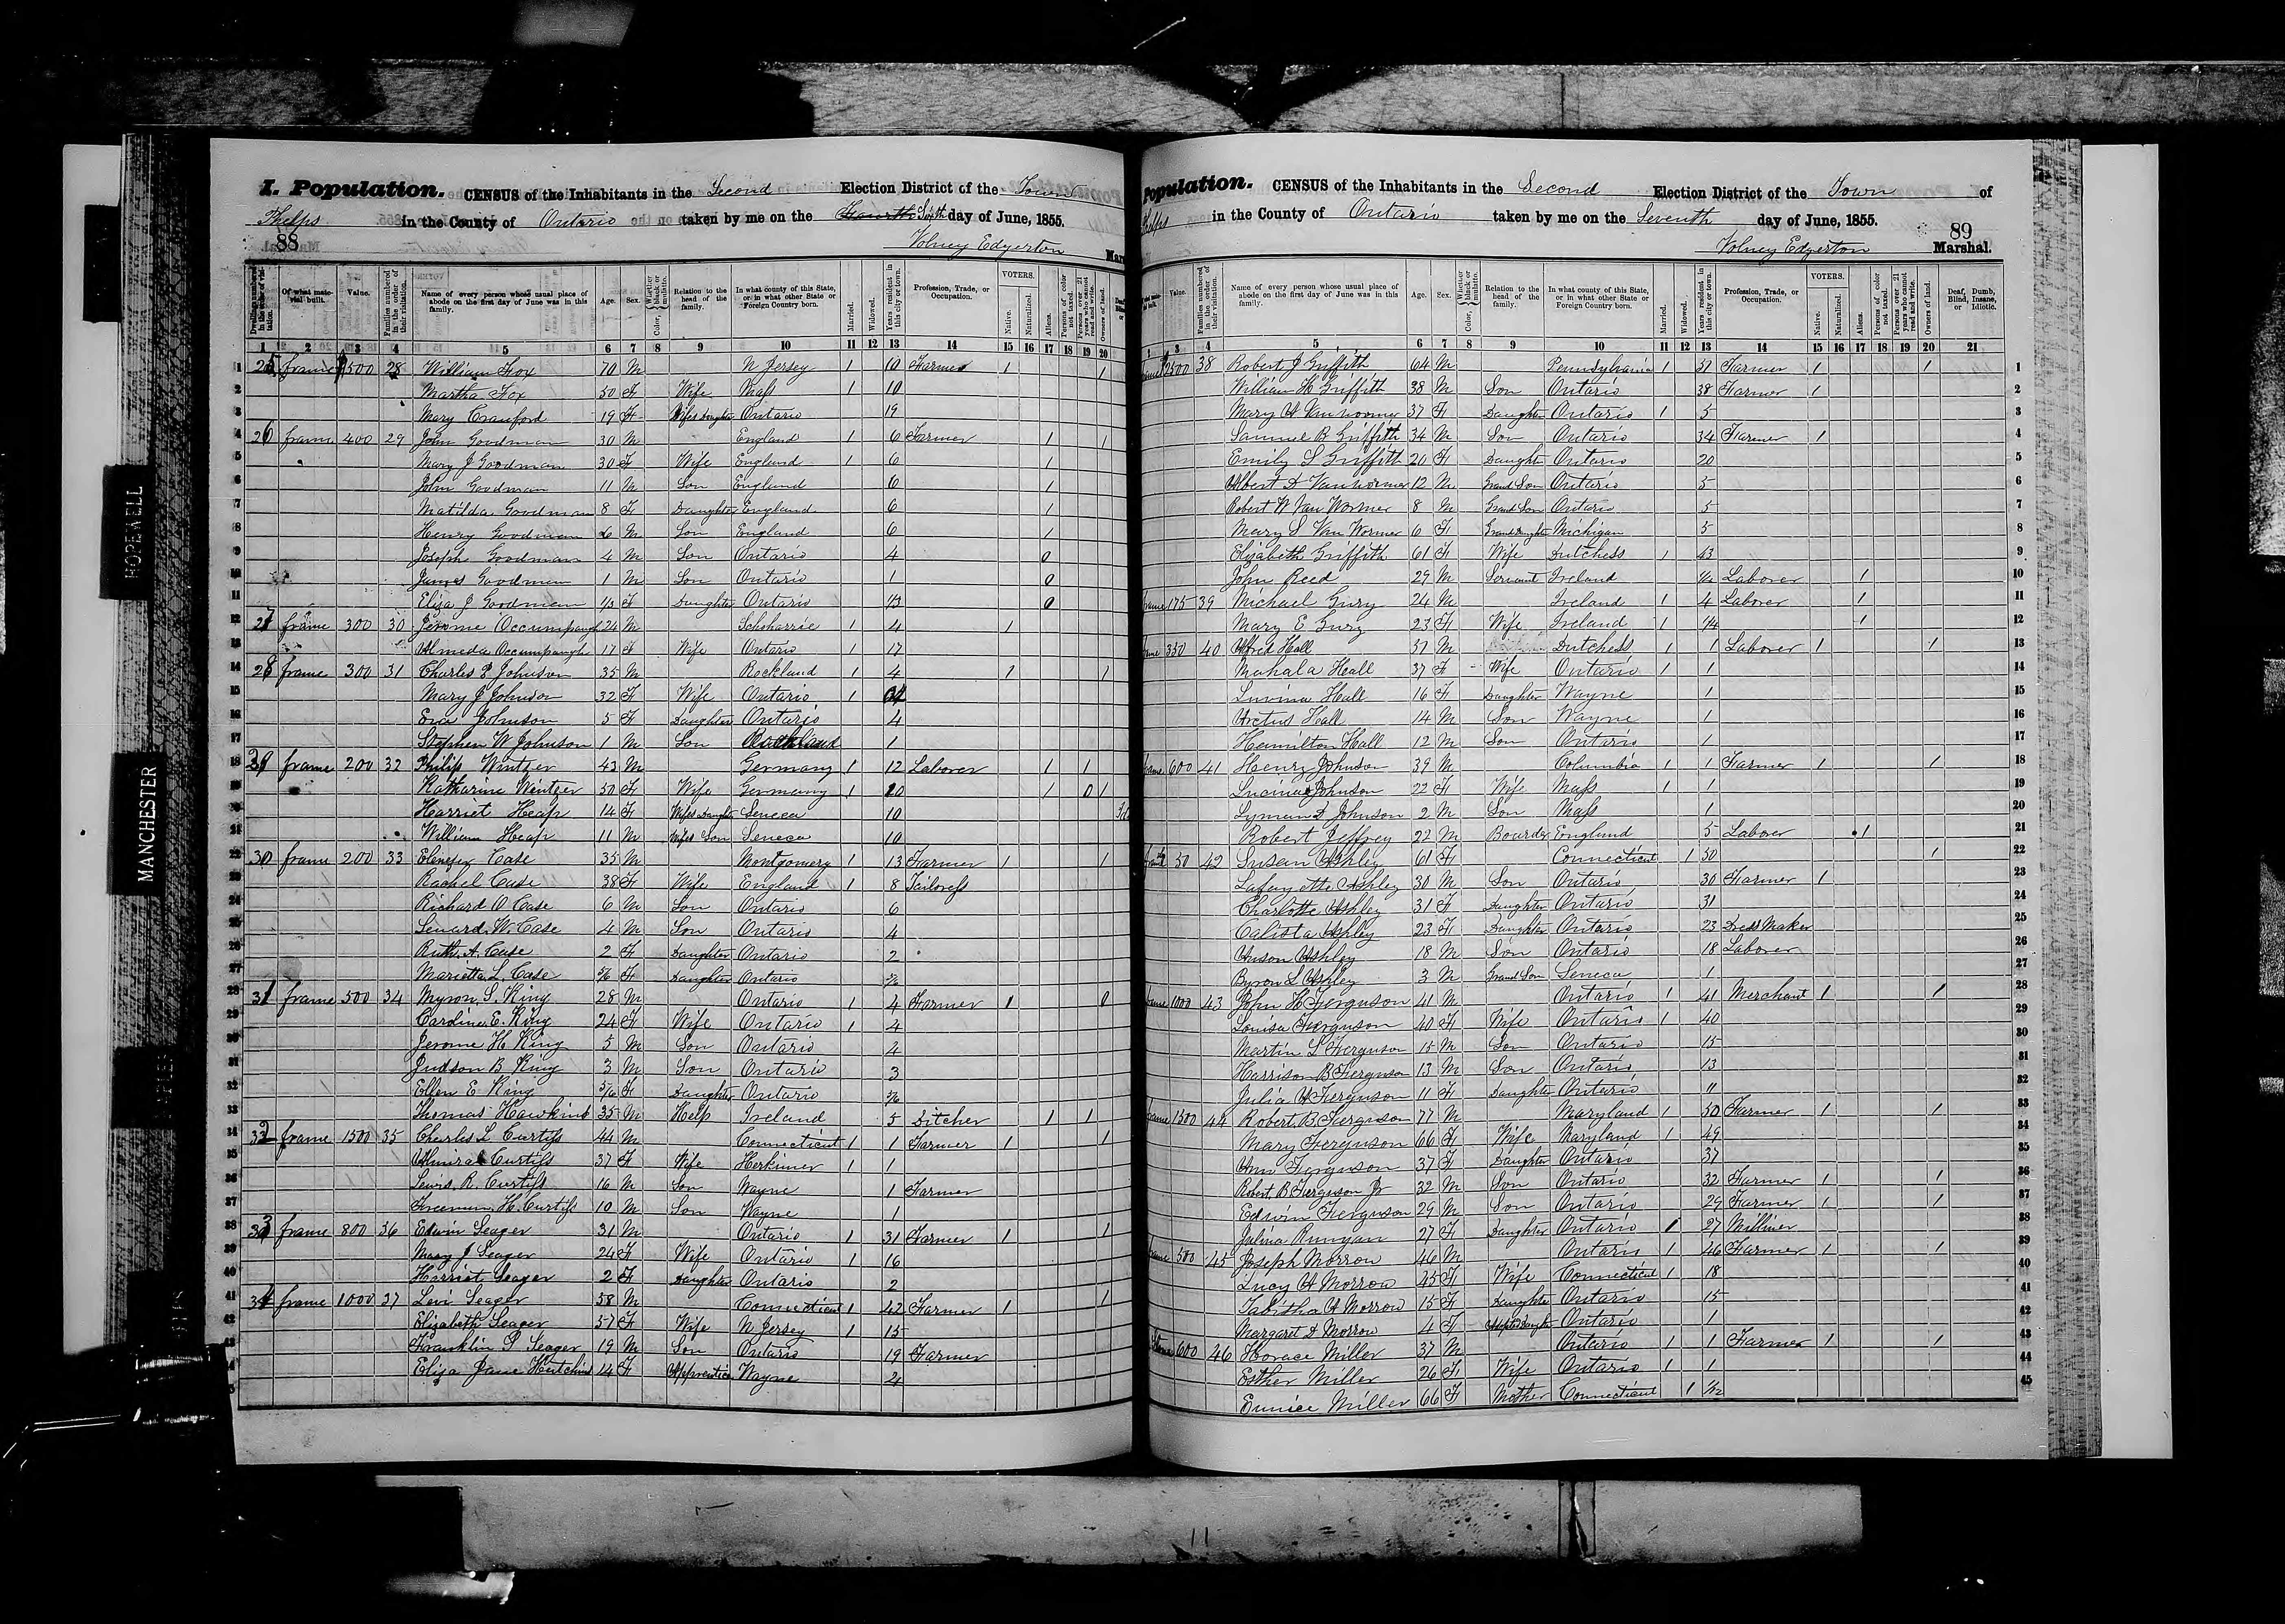 HOPEWELL
MANCHESTER
I. Population. CENSUS of the Inhabitants in the Second Election District of the Town
Phelps in the County of Ontario taken by me on the Fourth Sixth day of June, 1855.
88 Volney Edgerton Mar
Of what material built. Value. Families numbered in the order of their visitation. Name of every person whose usual place of abode on the first day of June was in this family. Age. Sex. Color, Whether black or mulatto. Relation to the head of the family. In what county of this State, or in what other State or Foreign Country born. Married. Widowed. Years resident in this city or town. Profession, Trade, or Occupation. VOTERS. Native. Naturalized. Aliens. Persons of color not taxed. Persons over 21 years who cannot read and write. Owners of land.
1 2 3 4 5 6 7 8 9 10 11 12 13 14 15 16 17 18 19 20
1 25 frame 500 28 William Fox 70 M N Jersey 1 10 Farmer 1 1
2 Martha Fox 50 F Wife Mass 1 10
3 Mary Crawford 19 F Wifes Daughter Ontario 19
4 26 frame 400 29 John Goodman 30 M England 1 6 Farmer 1 1
5 Mary J Goodman 30 F Wife England 1 6 1
6 John Goodman 11 M Son England 6 1
7 Matilda Goodman 8 F Daughter England 6 1
8 Henry Goodman 6 M Son England 6 1
9 Joseph Goodman 4 M Son Ontario 4 0
10 James Goodman 1 M Son Ontario 1 0
11 Eliza J Goodman 1/3 F Daughter Ontario 1/3 0
12 27 frame 300 30 Jerome Occumpaugh 24 M Schoharrie 1 4 1
13 Almeda Occumpaugh 17 F Wife Ontario 1 17
14 28 frame 300 31 Charles P Johnson 35 M Rockland 1 4 1 1
15 Mary J Johnson 32 F Wife Ontario 1
16 Eva Johnson 5 F Daughter Ontario 4
17 Stephen W Johnson 1 M Son 1
18 29 frame 200 32 Philip Wintzer 43 M Germany 1 12 Laborer 1 1
19 Katharine Wintzer 50 F Wife Germany 1 10 1 0 1
20 Harriet Heap 14 F Wifes Daughter Seneca 10
21 William Heap 11 M Wifes Son Seneca 10
22 30 frame 200 33 Ebenezer Case 35 M Montgomery 1 13 Farmer 1 1
23 Rachel Case 38 F Wife England 1 8 Tailoress
24 Richard O Case 6 M Son Ontario 6
25 Seward W. Case 4 M Son Ontario 4
26 Ruth A. Case 2 F Daughter Ontario 2
27 Marietta L. Case F Daughter Ontario
28 31 frame 500 34 Myron S. King 28 M Ontario 1 4 Farmer 1 0
29 Caroline E. King 24 F Wife Ontario 1 4
30 Jerome H King 5 M Son Ontario 4
31 Judson B King 3 M Son Ontario 3
32 Ellen E King F Daughter Ontario
33 Thomas Hawkins 35 M Help Ireland 5 Ditcher 1 1
34 32 frame 1500 35 Charles L Curtiss 44 M Connecticut 1 1 Farmer 1 1
35 Almira Curtiss 37 F Wife Herkimer 1 1
36 Lewis R. Curtiss 16 M Son Wayne 1 Farmer
37 Freeman H. Curtiss 10 M Son Wayne 1
38 33 frame 800 36 Edwin Seager 31 M Ontario 1 31 Farmer 1 1
39 Mary J Seager 24 F Wife Ontario 1 16
40 Harriet Seager 2 F Daughter Ontario 2
41 34 frame 1000 37 Levi Seager 58 M Connecticut 1 42 Farmer 1 1
42 Elizabeth Seager 57 F Wife N Jersey 1 15
43 Franklin P Seager 19 M Son Ontario 19 Farmer
44 Eliza Jane Hutchins 14 F Apprentice Wayne 4
Population. CENSUS of the Inhabitants in the Second Election District of the Town of
Phelps in the County of Ontario taken by me on the Seventh day of June, 1855.
89
Volney Edgerton Marshal.
Value. Families numbered in the order of their visitation. Name of every person whose usual place of abode on the first day of June was in this family. Age. Sex. Color, Whether black or mulatto. Relation to the head of the family. In what county of this State, or in what other State or Foreign Country born. Married. Widowed. Years resident in this city or town. Profession, Trade, or Occupation. VOTERS. Native. Naturalized. Aliens. Persons of color not taxed. Persons over 21 years who cannot read and write. Owners of land. Deaf, Dumb, Blind, Insane, or Idiotic.
3 4 5 6 7 8 9 10 11 12 13 14 15 16 17 18 19 20 21
2500 38 Robert J Griffith 64 M Pennsylvania 1 51 Farmer 1 1 1
William H Griffith 38 M Son Ontario 38 Farmer 1 2
Mary A Vanwormer 37 F Daughter Ontario 1 5 3
Samuel B Griffith 34 M Son Ontario 34 Farmer 1 4
Emily S Griffith 20 F Daughter Ontario 20 5
Albert D Vanwormer 12 M Grand Son Ontario 5 6
Robert W Van Wormer 8 M Grand Son Ontario 5 7
Mary S Van Wormer 6 F Grand Daughter Michigan 5 8
Elizabeth Griffith 61 F Wife Dutchess 1 43 9
John Reed 29 M Servant Ireland Laborer 1 10
frame 175 39 Michael Gury 24 M Ireland 1 4 Laborer 1 11
Mary E Gury 23 F Wife Ireland 1 1/4 1 12
frame 350 40 Alfred Hall 51 M Dutchess 1 1 Laborer 1 1 13
Mahala Hall 37 F Wife Ontario 1 1 14
Luvina Hall 16 F Daughter Wayne 1 15
Arctus Hall 14 M Son Wayne 1 16
Hamilton Hall 12 M Son Ontario 1 17
frame 600 41 Henry Johnson 39 M Columbia 1 1 Farmer 1 1 18
Lucina Johnson 22 F Wife Mass 1 1 19
Lyman D Johnson 2 M Son Mass 1 20
Robert Jeffrey 22 M Boarder England 5 Laborer 1 21
50 42 Susan Ashley 61 F Connecticut 1 50 1 22
Lafayette Ashley 30 M Son Ontario 30 Farmer 1 23
Charlotte Ashley 31 F Daughter Ontario 31 24
Calista Ashley 23 F Daughter Ontario 23 Dress Maker 25
Anson Ashley 18 M Son Ontario 18 Laborer 26
Byron L Ashley 3 M Grand Son Seneca 1 27
frame 1000 43 John H Ferguson 41 M Ontario 1 41 Merchant 1 1 28
Louisa Ferguson 40 F Wife Ontario 1 40 29
Martin L Ferguson 15 M Son Ontario 15 30
Harrison B Ferguson 13 M Son Ontario 13 31
Julia A Ferguson 11 F Daughter Ontario 11 32
frame 1500 44 Robert B Ferguson 77 M Maryland 1 50 Farmer 1 1 33
Mary Ferguson 66 F Wife Maryland 1 49 34
Ann Ferguson 37 F Daughter Ontario 37 35
Robert B Ferguson Jr 32 M Son Ontario 32 Farmer 1 1 36
Edwin Ferguson 29 M Son Ontario 29 Farmer 1 1 37
Julina Runyan 27 F Daughter Ontario 1 27 Milliner 38
frame 500 45 Joseph Morrow 46 M Ontario 1 46 Farmer 1 1 39
Lucy A Morrow 45 F Wife Connecticut 1 18 40
Tabitha A Morrow 15 F Daughter Ontario 15 41
Margaret D Morrow 4 F Adopted Daughter Ontario 1 42
Stone 600 46 Horace Miller 37 M Ontario 1 1 Farmer 1 1 43
Esther Miller 26 F Wife Ontario 1 1 44
Eunice Miller 66 F Mother Connecticut 1 1/12 45